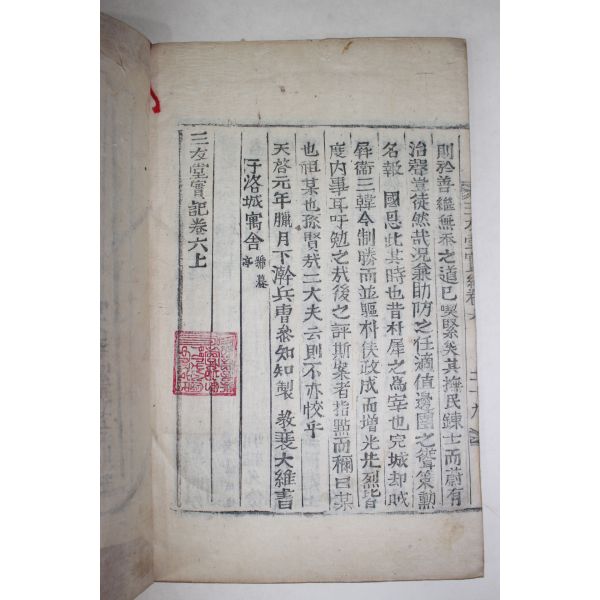 則於善繼無忝之道已喫緊矣其撫民鍊士而蔚有
治聲豈徒然哉況兼助防之任適值邊圉之聳策勳
名報 國恩此其時也昔朴犀之爲宰也完城却賊
屛衛三韓今制勝而並驅朴侯政成而增光先烈皆
度内事耳吁勉之哉後之評斯案者指點而稱曰某
也祖某也孫賢哉二大夫云則不亦恔乎
天啓元年臘月下澣兵曹叅知知製 敎裵大維書
于洛城寓舍
三友堂實記卷六上